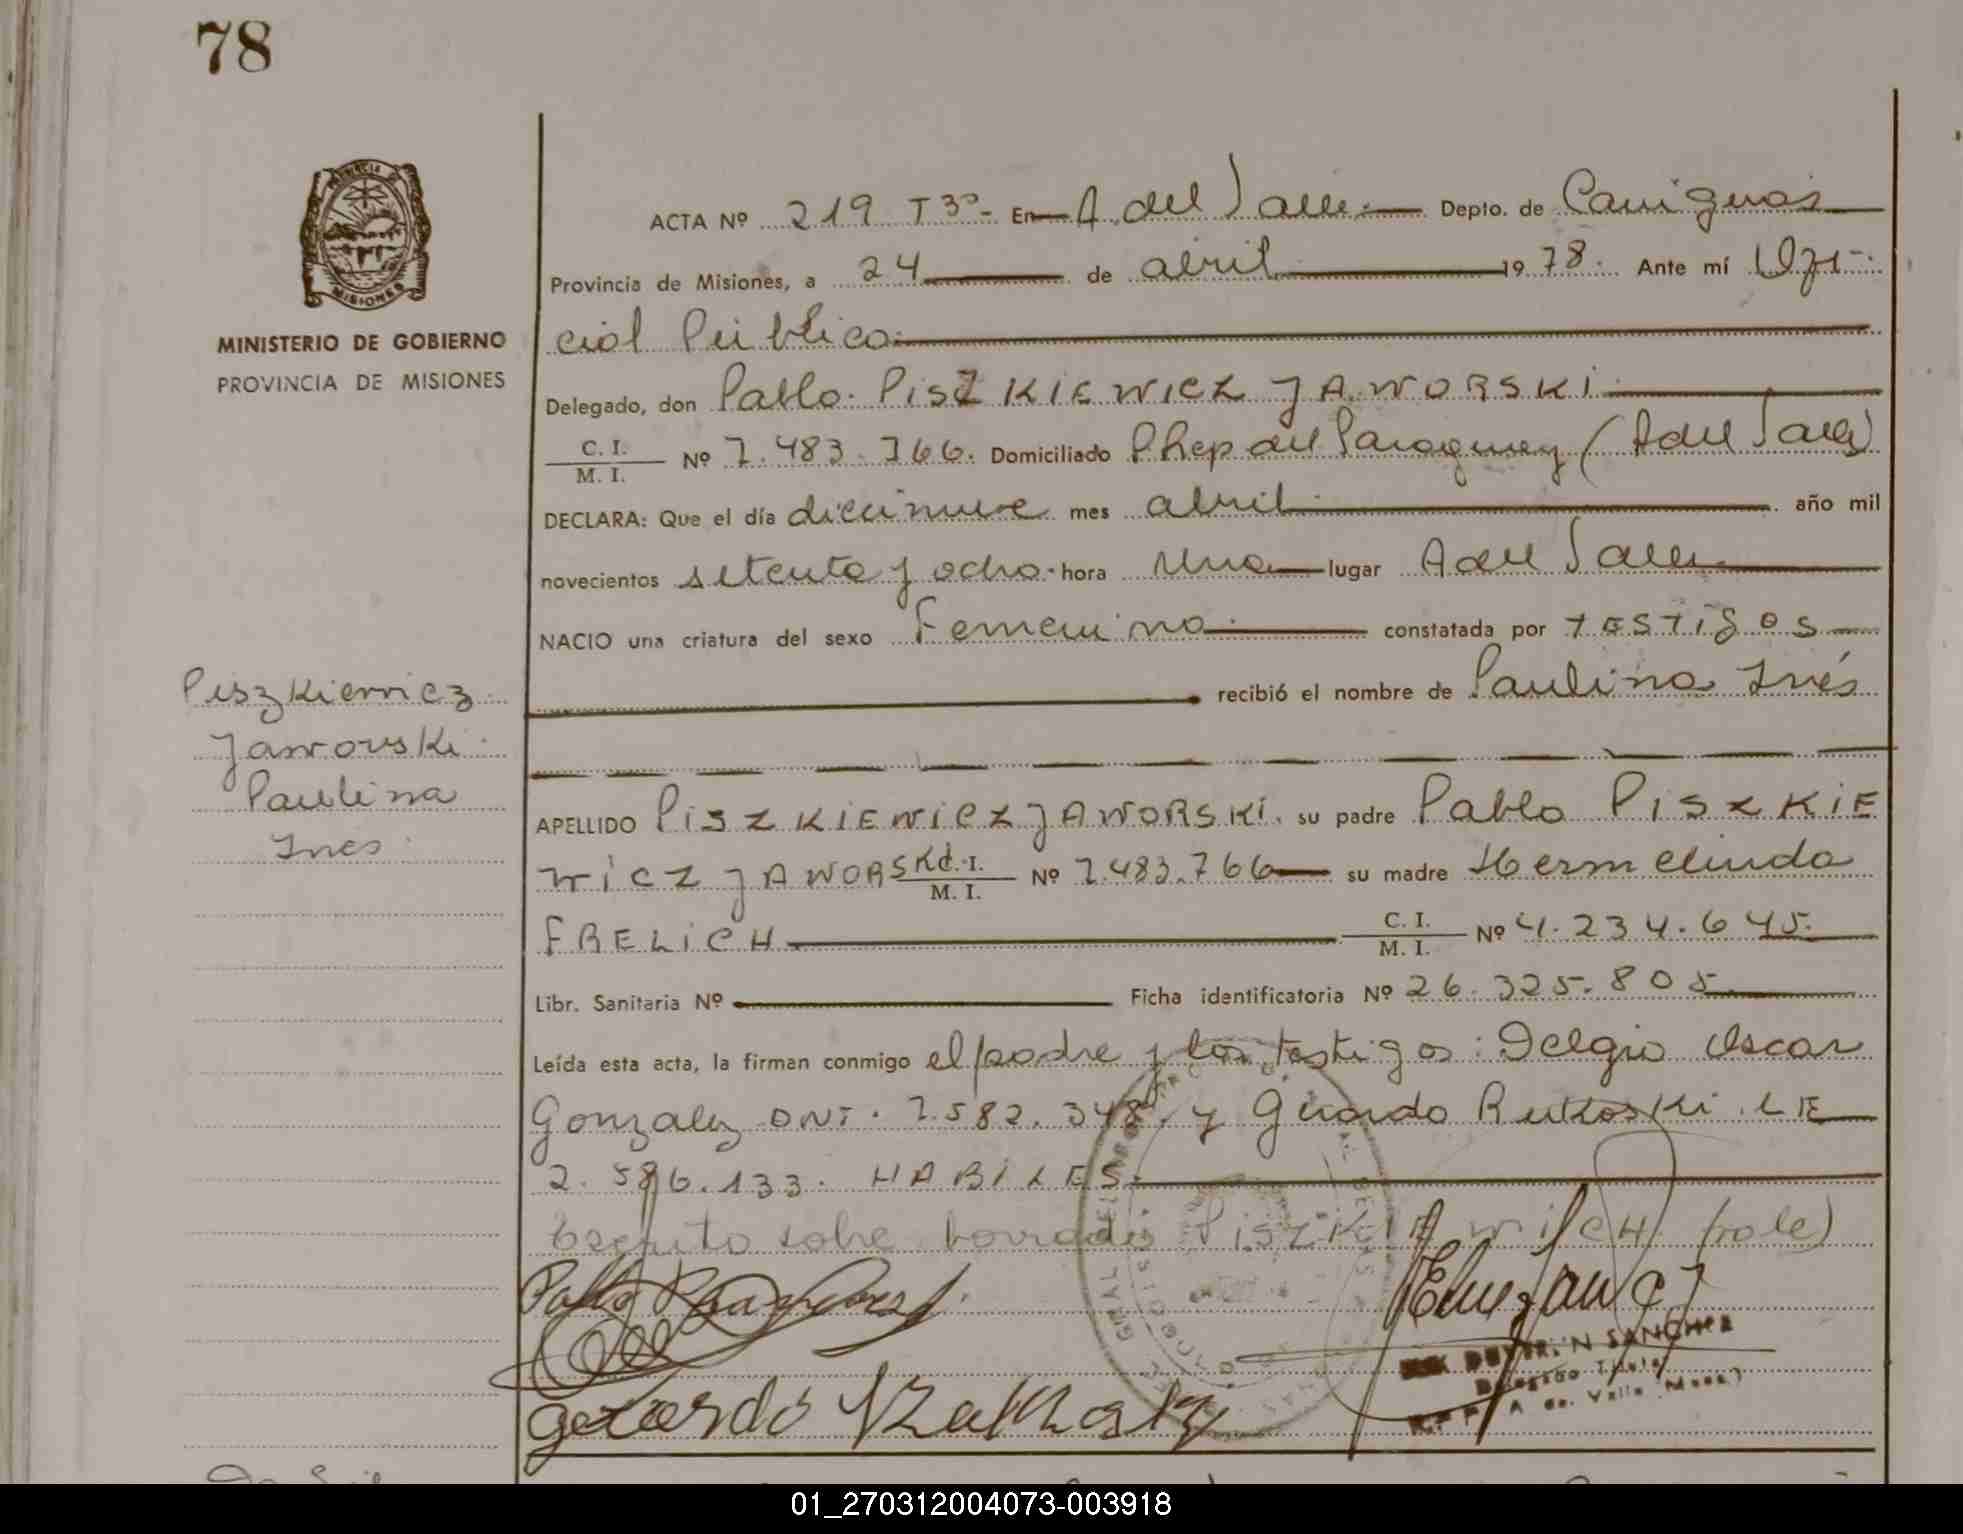 78
PROVINCIA DE
MISIONES
MINISTERIO DE GOBIERNO
PROVINCIA DE MISIONES
ACTA Nº 219 T3º- En A. del Valle.- Depto. de Cainguás
Provincia de Misiones, a 24 de abril 1978. Ante mí Ofi-
cial Público.
Delegado, don Pablo. PISZKIEWICZ JAWORSKI.
C. I.
M. I. Nº 7.483.766. Domiciliado Rhep del Paraguay (A del Valle)
DECLARA: Que el día diecinueve mes abril. año mil
novecientos setenta y ocho. hora Una lugar A del Valle.
NACIO una criatura del sexo Femenino. constatada por TESTIGOS
recibió el nombre de Paulina Inés
Piszkiewicz
Jaworski.
Paulina
Ines
APELLIDO PISZKIEWICZ JAWORSKI. su padre Pablo PISZKIE
WICZ JAWORSKI C. I.
M. I. Nº 7.483.766 su madre Hermelinda
FRELICH C. I.
M. I. Nº 4.234.645.
Libr. Sanitaria Nº Ficha identificatoria Nº 26.325.805.
Leída esta acta, la firman conmigo el padre y los testigos: Delgio Oscar
Gonzalez DNI. 7.582.348. y Gerardo Rutkoski. LE
2.586.133. HABILES.
Escrito sobre borrado: PISZKIEWICH (vale)
Gerardo
SANCHEZ
Titular
A del Valle
01_270312004073-003918